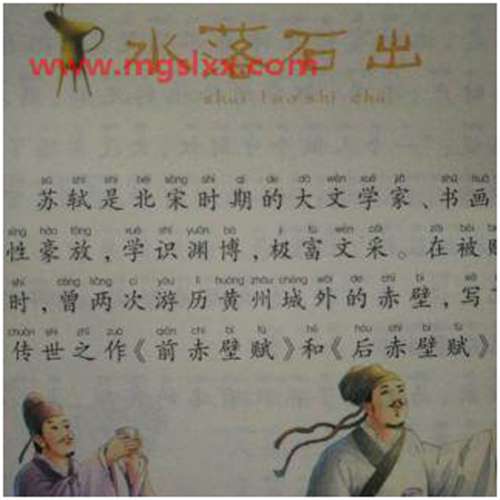 水落石出
www.mgslxx.com
shuǐ luò shí chū
sū shì shì běi sòng shí qī de dà wén xué jiā shū huà
苏轼是北宋时期的大文学家、书画
xìng háo fàng xué shí yuān bó jí fù wén cǎi zài bèi
性豪放，学识渊博，极富文采。在被
shí céng liǎng cì yóu lì huáng zhōu chéng wài de chì bì xiě
时，曾两次游历黄州城外的赤壁，写
chuán shì zhī zuò qián chì bì fù hé hòu chì bì fù
传世之作《前赤壁赋》和《后赤壁赋》